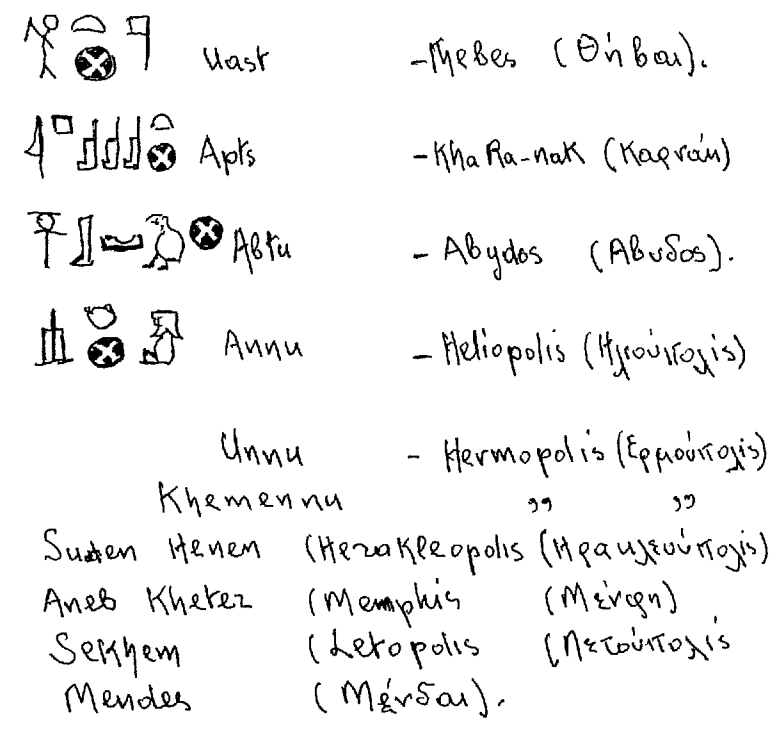 Uast - Thebes (Θήβαι).
Apts - Kha Ra-nak (Καρνάκ)
Abtu - Abydos (Αβυδος).
Annu - Heliopolis (Ηλιούπολις)
Unnu - Hermopolis (Ερμούπολις)
Khemennu ,, ,,
Suten Henen (Herakleopolis (Ηρακλεούπολις)
Aneb Khetez (Memphis (Μέμφη)
Sekhem (Letopolis (Λετούπολις
Mendes (Μένδαι).